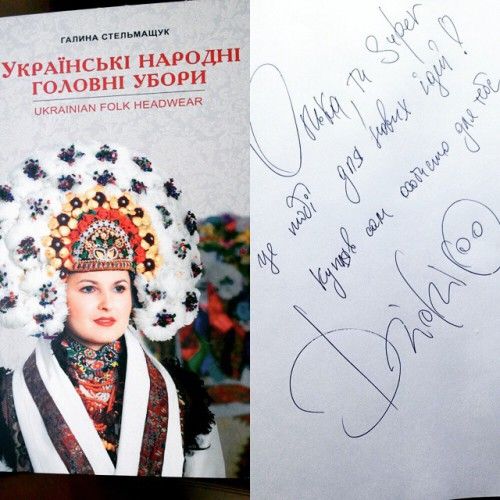 ГАЛИНА СТЕЛЬМАЩУК
УКРАЇНСЬКІ НАРОДНІ
ГОЛОВНІ УБОРИ
UKRAINIAN FOLK HEADWEAR
Олька ти Super
це тобі для нових ідей!
купляв сам особисто для тебе